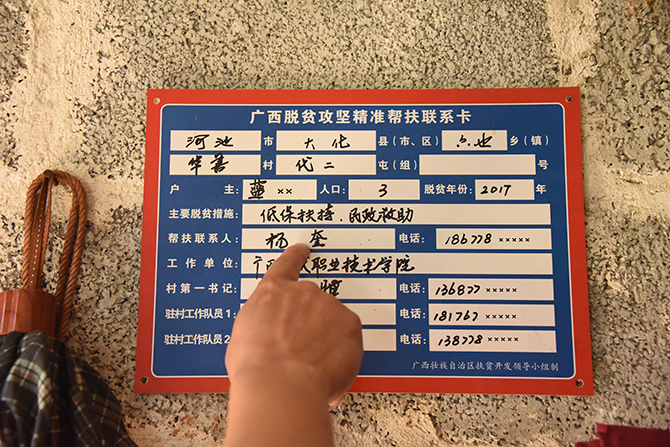 广西脱贫攻坚精准帮扶联系卡
河池 市 大化 县(市、区) 六也 乡(镇)
华善 村 代二 屯(组) 号
户 主: 蓝×× 人口: 3 脱贫年份: 2017 年
主要脱贫措施: 低保扶持、民政救助
帮扶联系人: 杨 奎 电话: 186778×××××
工作单位: 广西 职业技术学院
村第一书记: 电话: 136877×××××
驻村工作队员1: 电话: 181767×××××
驻村工作队员2 电话: 138778×××××
广西壮族自治区扶贫开发领导小组制